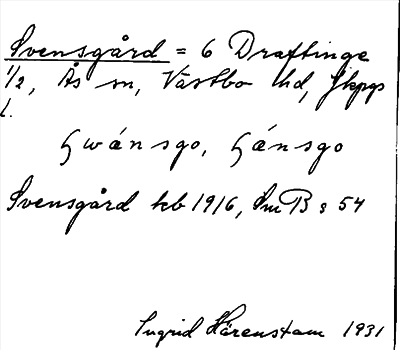 Svensgård = 6 Draftinge
1/2, Ås sn, Västbo hd, Jkpgs
l.
swánsgo, sánsgo
Svensgård kb 1916, SmB s 54
Ingrid Härenstam 1931